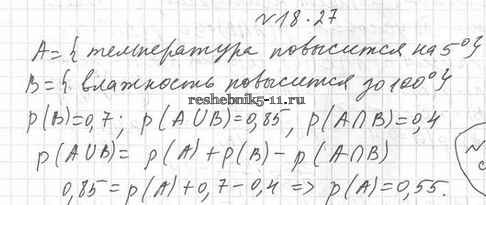 №18.27
A={температура повысится на 5°}
B={влажность повысится до 100°}
reshebnik5-11.ru
p(B)=0,7; p(A∪B)=0,85, p(A∩B)=0,4
p(A∪B)= p(A)+p(B)-p(A∩B)
0,85=p(A)+0,7-0,4 => p(A)=0,55.